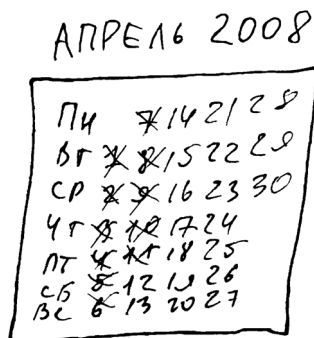 АПРЕЛЬ 2008
ПН 7 14 21 28
ВТ 1 8 15 22 29
СР 2 9 16 23 30
ЧТ 3 10 17 24
ПТ 4 11 18 25
СБ 5 12 19 26
ВС 6 13 20 27